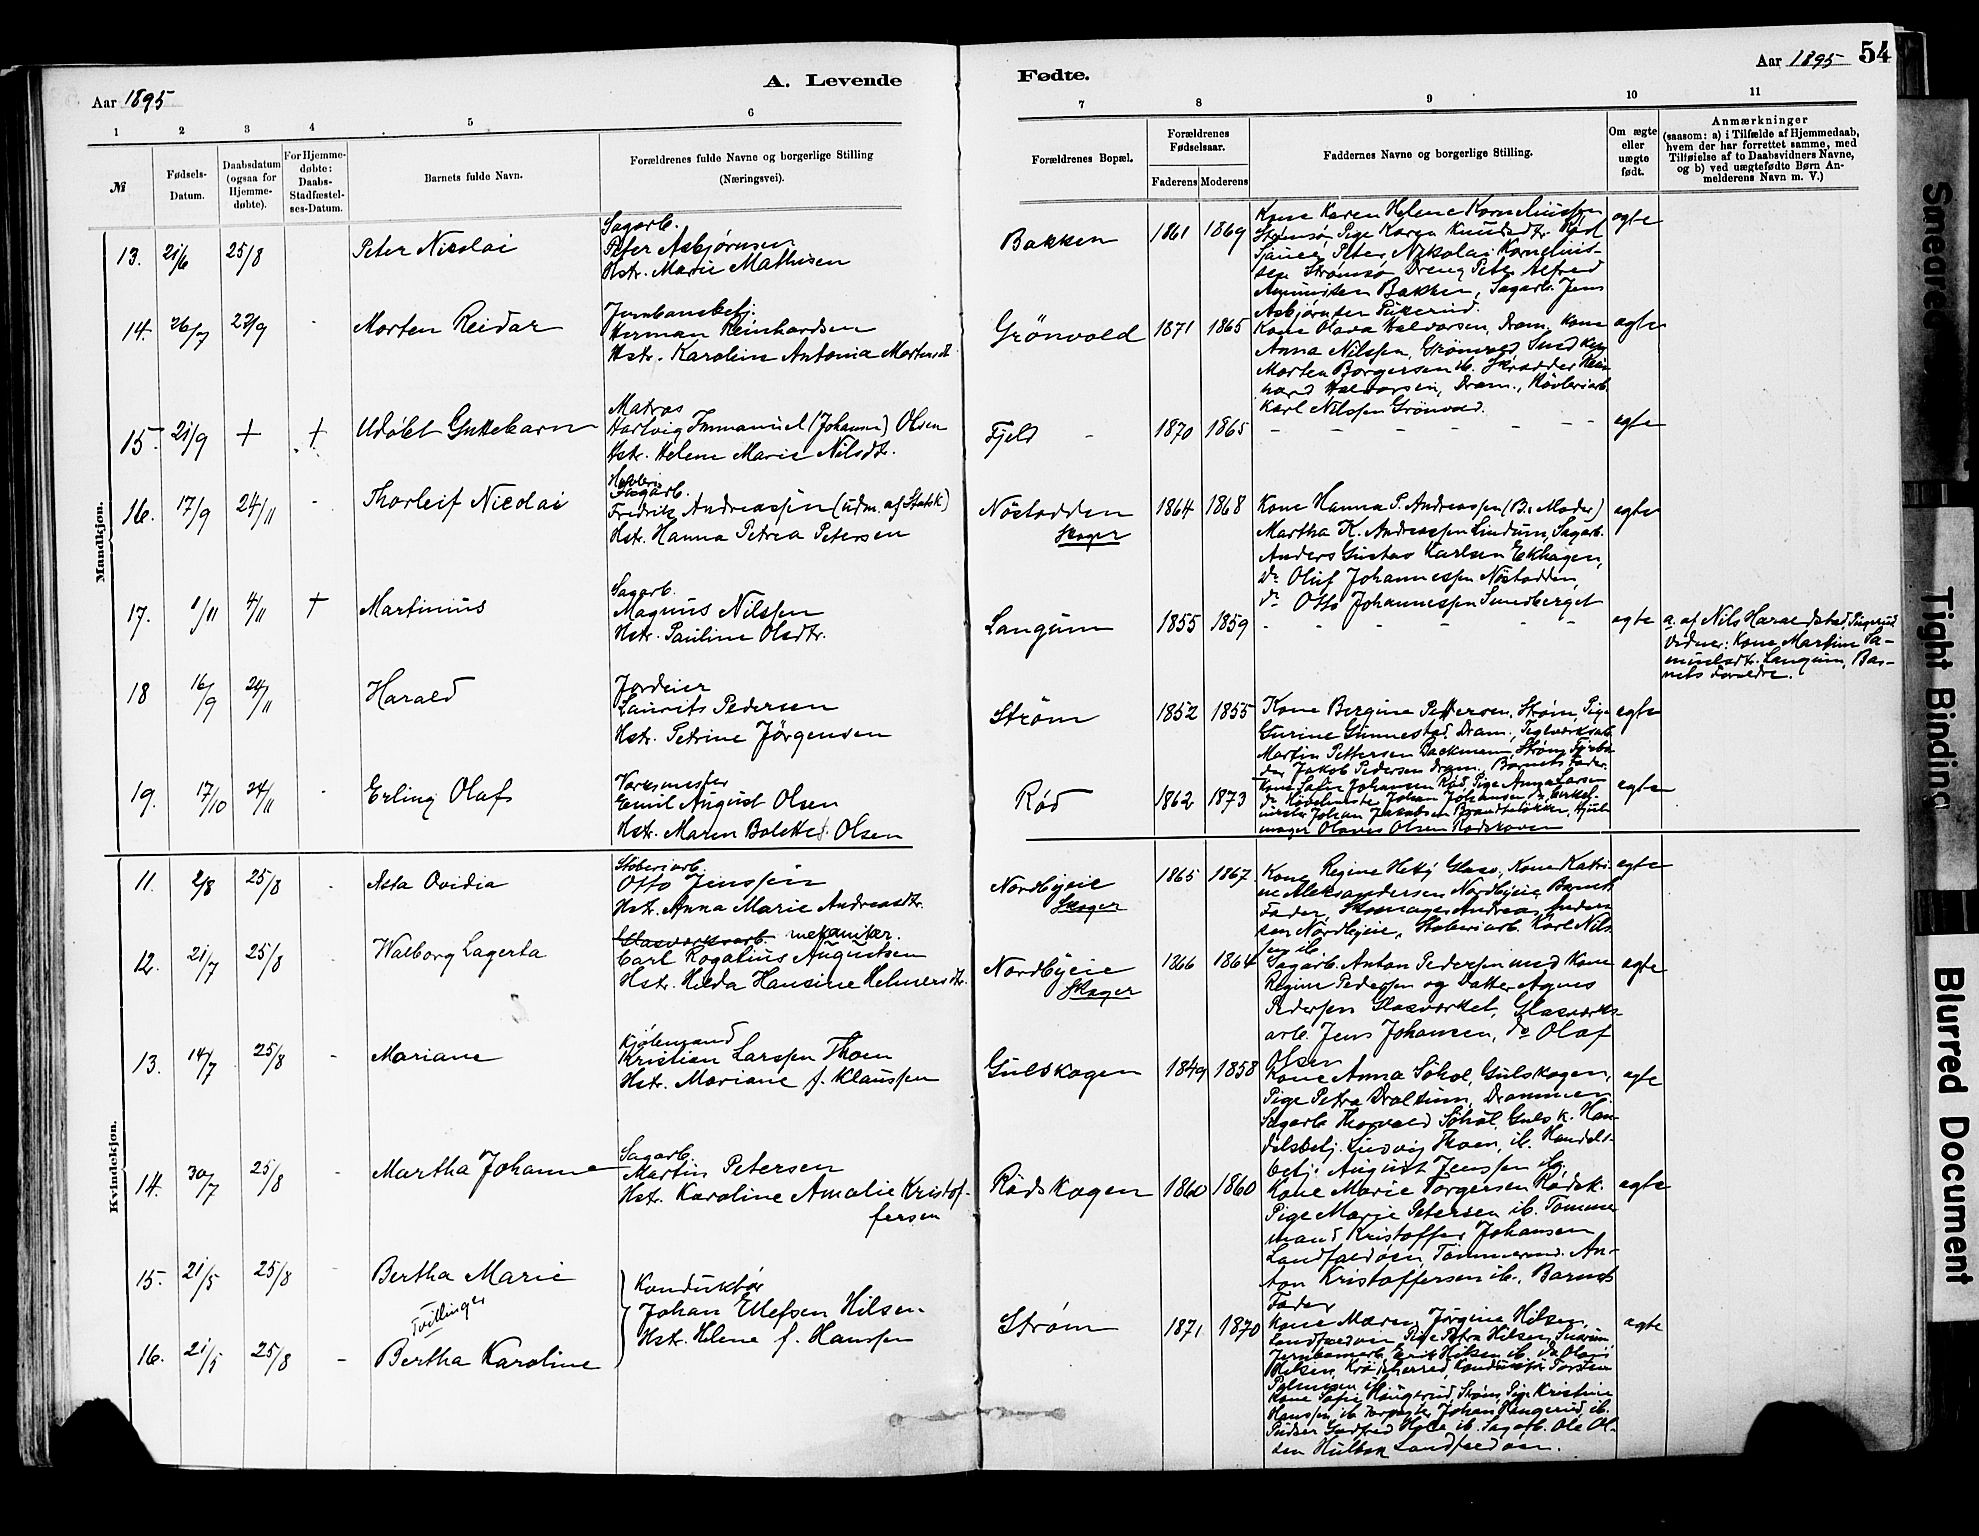 Aar 1895
A. Levende
Fødte.
Aar 1895
54
1 2 3 4 5 6 7 8 9 10 11
№
Fødsels-
Datum.
Daabsdatum
(ogsaa for
Hjemme-
døbte).
For Hjemme-
døbte:
Daabs-
Stadfæstel-
ses-Datum.
Barnets fulde Navn.
Forældrenes fulde Navne og borgerlige Stilling
(Næringsvei).
Forældrenes Bopæl.
Forældrenes
Fødselsaar.
Faderens Moderens
Faddernes Navne og borgerlige Stilling.
Om ægte
eller
uægte
født.
Anmærkninger
(saasom: a) i Tilfælde af Hjemmedaab,
hvem der har forrettet samme, med
Tilføielse af to Daabsvidners Navne,
og b) ved uægtefødte Børn An-
melderens Navn m. V.)
Mandkjøn.
13. 21/6 25/8 Peter Nicolai
Sagarb.
Peter Asbjørnsen
Hstr. Marie Mathisen
Bakken 1861 1869 ægte
Kone Karen Helene Korneliussen
Strømsø, Pige Karen Knudsdtr. Rød
Peter Nikolai Kornelius-
sen Strømsø Dreng Peter Alfred
Bakken, Sagarb. Jens
Asbjørnsen
14. 26/7 29/9 - Morten Reidar
Jernbanebetj.
Herman Reinhardsen
Hstr. Karoline Antonia Mortensdt.
Grönvold 1871 1865 ægte
Kone Olava Halvorsen, Dram. Kone
Anna Nilssen, Grönvold
Morten Borgersen ib. Skrædder Rein-
hard Halvorsen, Dram., Høvleriarb.
Karl Nilssen Grönvold.
15. 21/9 + + Udøbt Guttebarn
Matros
Hartvig Immanuel (Johann) Olsen
Hstr. Helene Marie Nilsdtr.
Fjeld - 1870 1865 - - - - - - ægte
16. 17/9 24/11 - Thorleif Nicolai
Fredrik Andreassen (udm. af Statsk)
Hstr. Hanna Petrea Petersen
Nöstodden 1864 1868 ægte
Skoger
Kone Hanna P. Andreassen (B. Moder)
Martha K. Andreassen Lindum, Sagarb.
Anders Gustav Karlsen Ekhagen,
do Oluf Johannessen Nöstodden,
do Otto Johannessen Sundberget
17. 1/11 4/11 + Martinius
Sagarb.
Magnus Nilssen
Hstr. Pauline Olsdtr.
Langum 1855 1859 - - - - - - ægte
a. af Nils Haraldstad,
Vidner: Kone Martine Sa-
muelsdtr. Langum, Bar-
nets Forældre.
18 16/9 24/11 Harald
Jordeier
Laurits Pedersen
Hstr. Petrine Jörgensen
Strøm 1852 1855 ægte
Kone Bergine Pettersen, Strøm, Pige
Gurine Gunnestad, Dram., Teglværksarb.
Martin Pettersen Backmann, Strøm,
Jakob Pedersen Dram. Barnets Fader.
19. 17/10 24/11 - Erling Olaf
Værksmester
Emil August Olsen
Hstr. Maren Bolette Olsen
Rød 1862 1873 ægte
Johansen Rød, Pige Anna Larsen
do Høvelmester Johan Johansen
mester Johan Jakobsen Hjul-
mager Olaves Olsen
Kvindekjøn.
11. 2/8 25/8 - Asta Ovidia
Støberiarb.
Otto Jenssen
Hstr. Anna Marie Andreasdtr.
Nordbyeie 1865 1867. ægte
Skoger
Kone Regine Glasv., Kone Katri-
ne Aleksandersen Nordbyeie, Barnets
Fader, Skomager Andreas Ander-
sen Nordbyeie, Støberiarb. Karl Nils-
sen ib.
12. 21/7 25/8 - Walborg Lagerta
Glasværksarb. mekaniker.
Carl Rogalius Augustsen
Hstr. Hilda Hansine Helmersdtr.
Nordbyeie 1866 1864 ægte
Skoger
Sagarb. Anton Pedersen med Kone
Regine Pedersen og Datter Agnes
Pedersen Glasværket, Glasværks-
arb. Jens Johansen, do Olaf
Olsen
13. 14/7 25/8 - Mariane
Kjøbmand
Kristian Larssen Thoen
Hstr. Mariane f. Klaussen
Gulskogen 1849 1858 ægte
Kone Anna Söhol, Gulskogen,
Pige Petra Drolsum, Drammen
Sagarb. Thorvald Söhol, Gulsk. Han-
delsbetj. Ludvig Thoen, ib. Handels-
betj. August Jenssen
14. 30/7 25/8 - Martha Johanne
Sagarb.
Martin Petersen
Hst. Karoline Amalie Kristof-
fersen
Rödskogen 1860 1860 ægte
Kone Marie Torgersen Rödsk.
Pige Marie Petersen ib. Tömmer-
mand Kristoffer Johansen
Landfaldöen, Tömmermd. An-
ton Kristoffersen ib., Barnets
Fader
15. 21/5 25/8 - Bertha Marie
Tvillinger
16. 21/5 25/8 - Bertha Karoline
Konduktør
Johan Ellefsen Hilsen
Hstr. Helene f. Hanssen
Strøm 1871 1870 ægte
Kone Maren Jörgine Hilsen,
Landfaldöen, Pige Petra Hilsen,
Jernbanearb. Erik Hilsen ib. do Olaus
Hilsen, Konduktör Torsten
Kone Sofie Haugerud, Strøm, Pige Kristine
Hanssen ib. Johan Haugerud ib.
Pudser Gudfred ib. Sagarb. Ole Ol-
sen Hulbak Landfaldöen.
Smeared
Tight Binding
Blurred Document